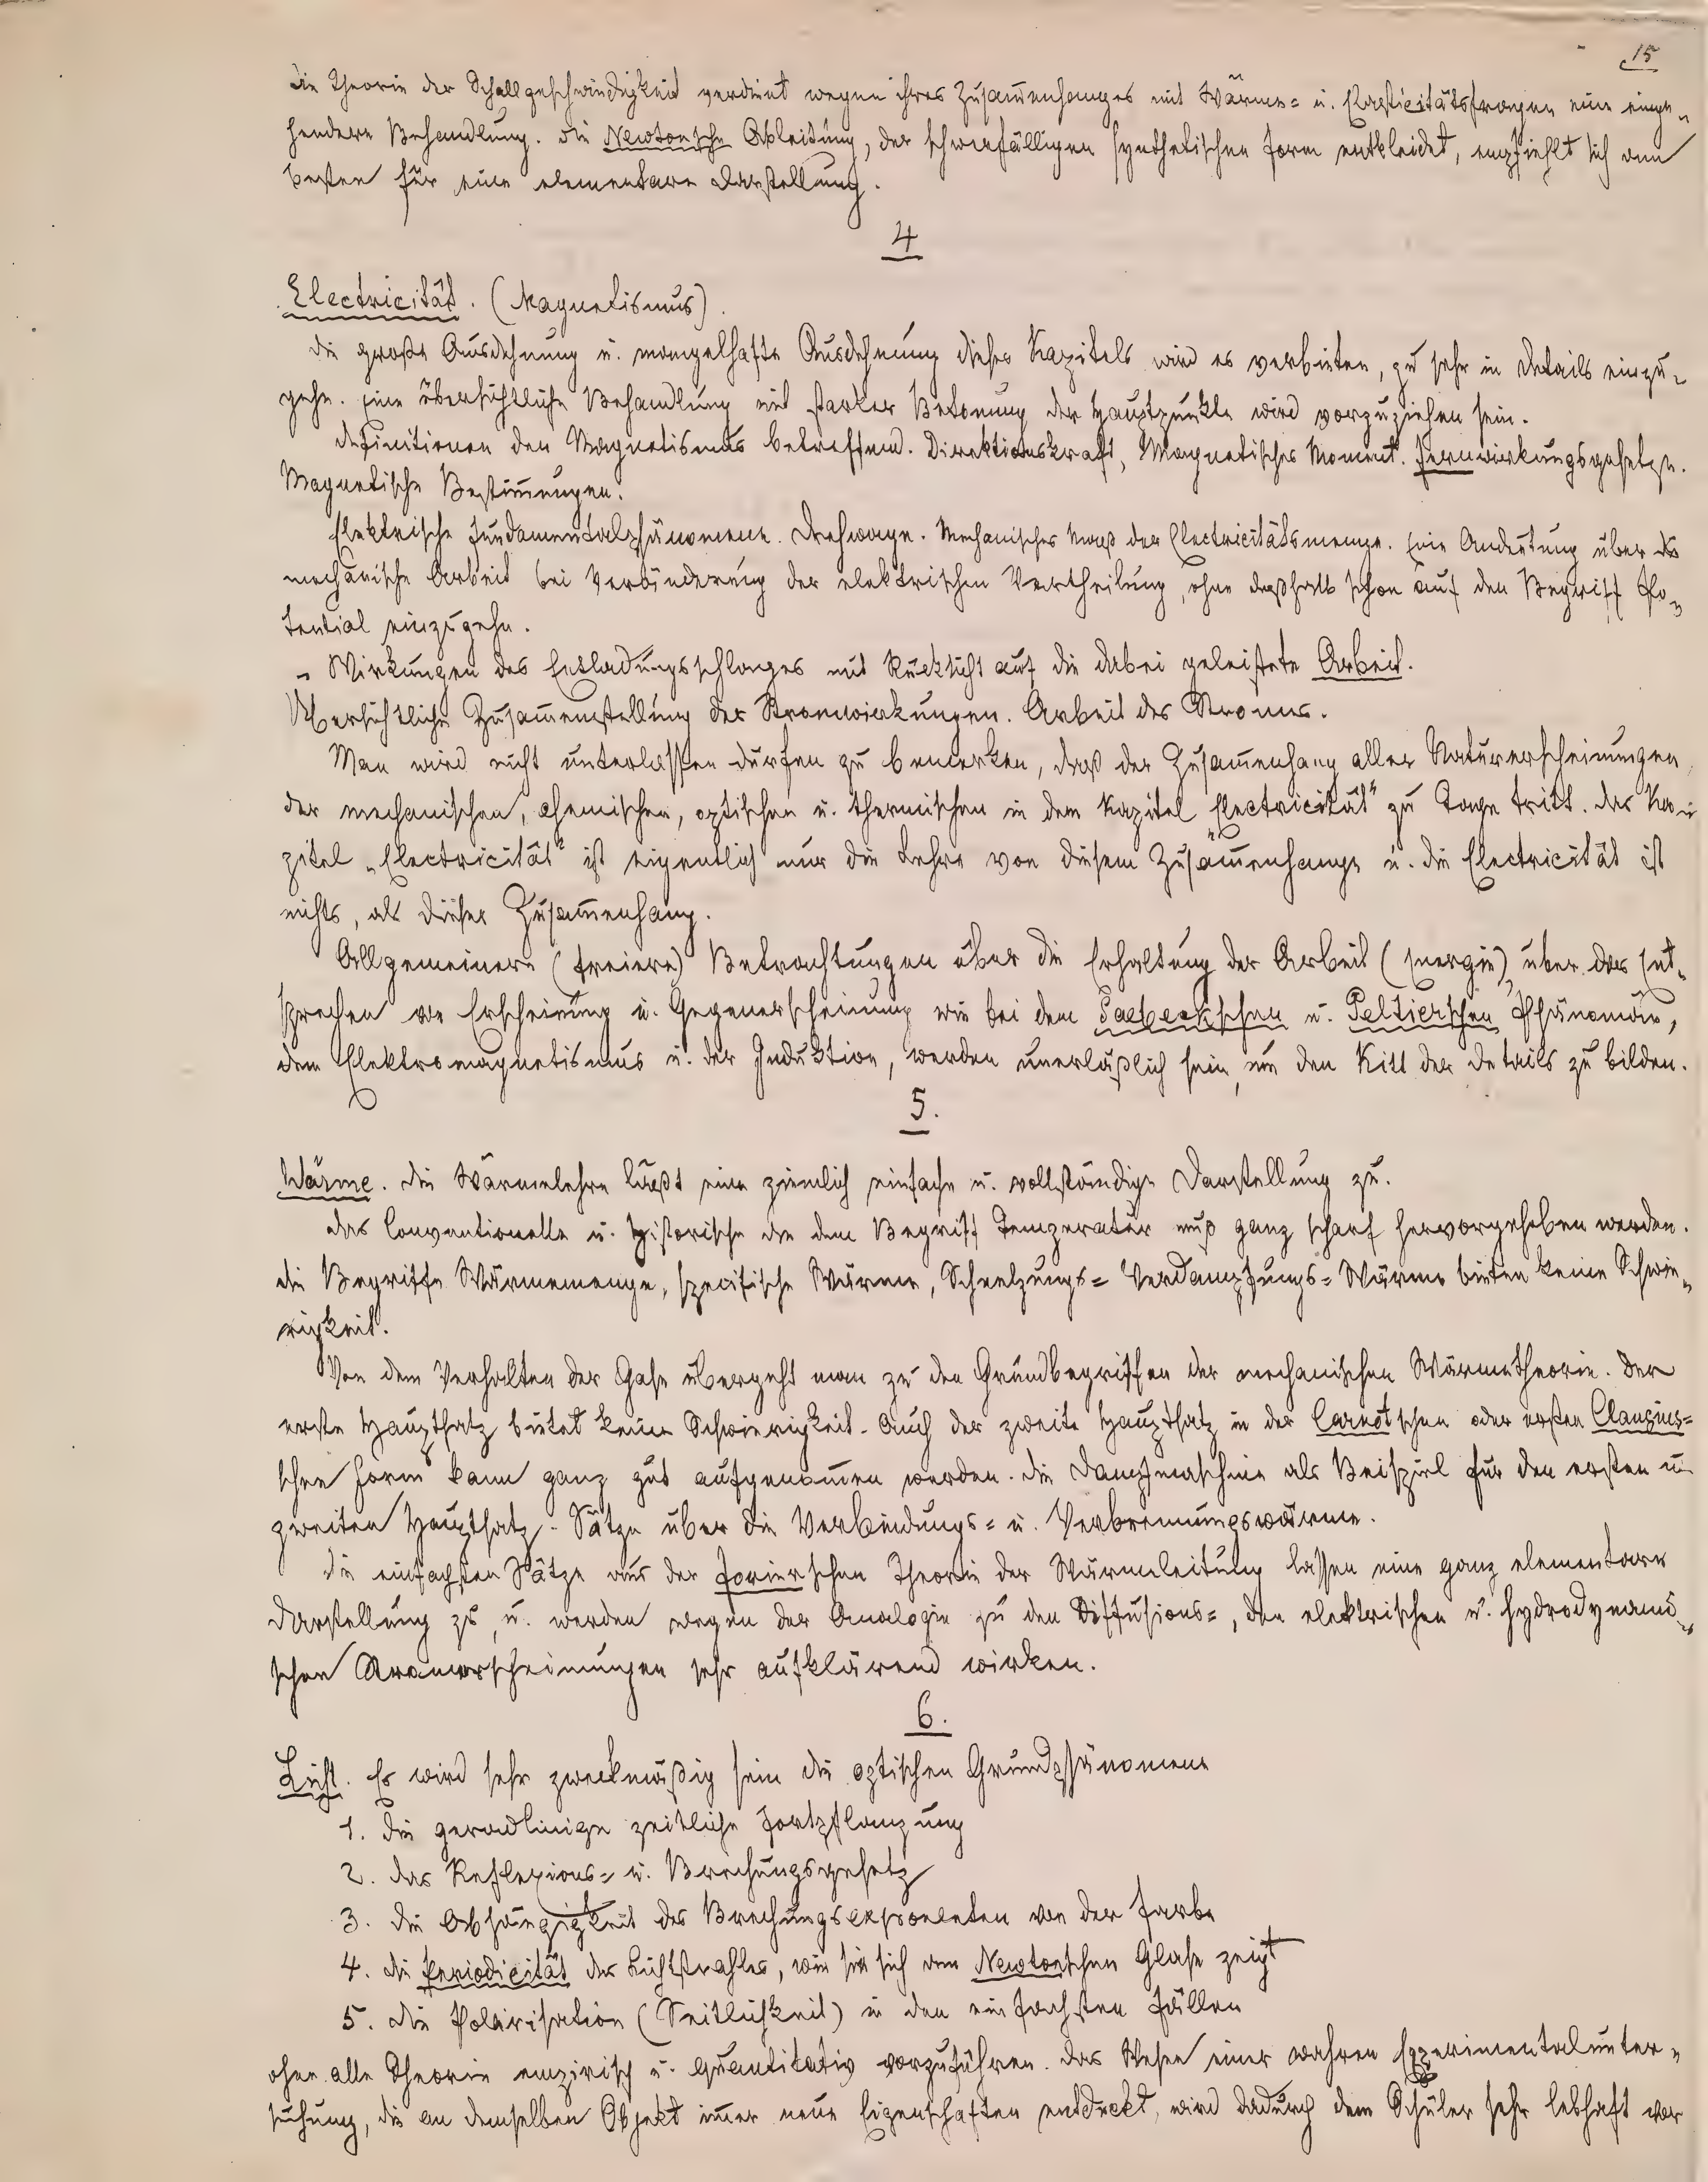 15
Die Theorie der Schallgeschwindigkeit verdient wegen ihres Zusam̄enhanges mit Wärme= u. Elasticitätsfragen eine einge=
hendere Behandlung. Die Newtonsche Ableitung, der schwerfälligen synthetischen Form entkleidet, empfiehlt sich am
besten für eine elementare Darstellung.
4
Electricität. (Magnetismus).
Die große Ausdehnung u. mangelhafte Ausdehnung dieses Kapitels wird es verbieten, zu sehr in Details einzu=
gehn. Eine übersichtliche Behandlung mit starker Betonung der Hauptpunkte wird vorzuziehen sein.
Definitionen den Magnetismus betreffend. Direktionskraft, Magnetisches Moment. Fernwirkungsgesetze.
Magnetische Bestim̄ungen.
Elektrische Fundamentalphänomene. Drehwage. Mechanisches Maß der Electricitätsmenge. Eine Andeutung über die
mechanische Arbeit bei Veränderung der elektrischen Vertheilung, ohne deßhalb schon auf den Begriff Po=
tential einzugehn.
Wirkungen des Entladungsschlages mit Rücksicht auf die dabei geleistete Arbeit.
Übersichtliche Zusam̄enstellung der Stromwirkungen. Arbeit des Stromes.
Man wird nicht unterlassen dürfen zu bemerken, daß der Zusam̄enhang aller Naturerscheinungen,
der mechanischen, chemischen, optischen u. thermischen in dem Kapitel „Electricität" zu Tage tritt. Das Ka=
pitel „Electricität" ist eigentlich nur die Lehre von diesem Zusam̄enhange u. die Electricität ist
nichts, als dieser Zusam̄enhang.
Allgemeinere (freiere) Betrachtungen über die Erhaltung der Arbeit (Energie), über das Ent=
sprechen von Erscheinung u. Gegenerscheinung wie bei dem Seebeckschen u. Peltierschen Phänomän,
dem Elektromagnetismus u. der Induktion, werden unerläßlich sein, um den Kitt der Details zu bilden.
5.
Wärme. Die Wärmelehre läßt eine ziemlich einfache u. vollständige Darstellung zu.
Das Conventionelle u. Historische an dem Begriff Temperatur muß ganz scharf hervorgehoben werden.
Die Begriffe Wärmemenge, specifische Wärme, Schmelzungs= Verdampfungs= Wärme bieten keine Schwie=
rigkeit.
Von dem Verhalten der Gase übergeht man zu den Grundbegriffen der mechanischen Wärmetheorie. Der
erste Hauptsatz bietet keine Schwierigkeit. Auch der zweite Hauptsatz in der Carnotschen oder ersten Clausius=
schen Form kann ganz gut aufgenom̄en werden. Die Dampfmaschine als Beispiel für den ersten u.
zweiten Hauptsatz. Sätze über die Verbindungs= u. Verbrennungswärme.
Die einfachsten Sätze aus der Forierschen Theorie der Wärmeleitung lassen eine ganz elementare
Darstellung zu, u. werden wegen der Analogie zu den Diffusions=, den elektrischen u. hydrodynami=
schen Stromerscheinungen sehr aufklärend wirken.
6.
Licht. Es wird sehr zweckmäßig sein die optischen Grundphänomene
1. Die geradlinige zeitliche Fortpflanzung
2. das Reflexions= u. Brechungsgesetz
3. die Abhängigkeit des Brechungsexponenten von der Farbe
4. die Periodicität des Lichtstrahles, wie sie sich am Newtonschen Glase zeigt
5. die Polarisation (Seitlichkeit) in den einfachsten Fällen
ohne alle Theorie empirisch u. quantitativ vorzuführen. Das Wesen einer wahren Experimentalunter=
suchung, die an demselben Objekt im̄er neue Eigenschaften entdeckt, wird dadurch dem Schüler sehr lebhaft vor